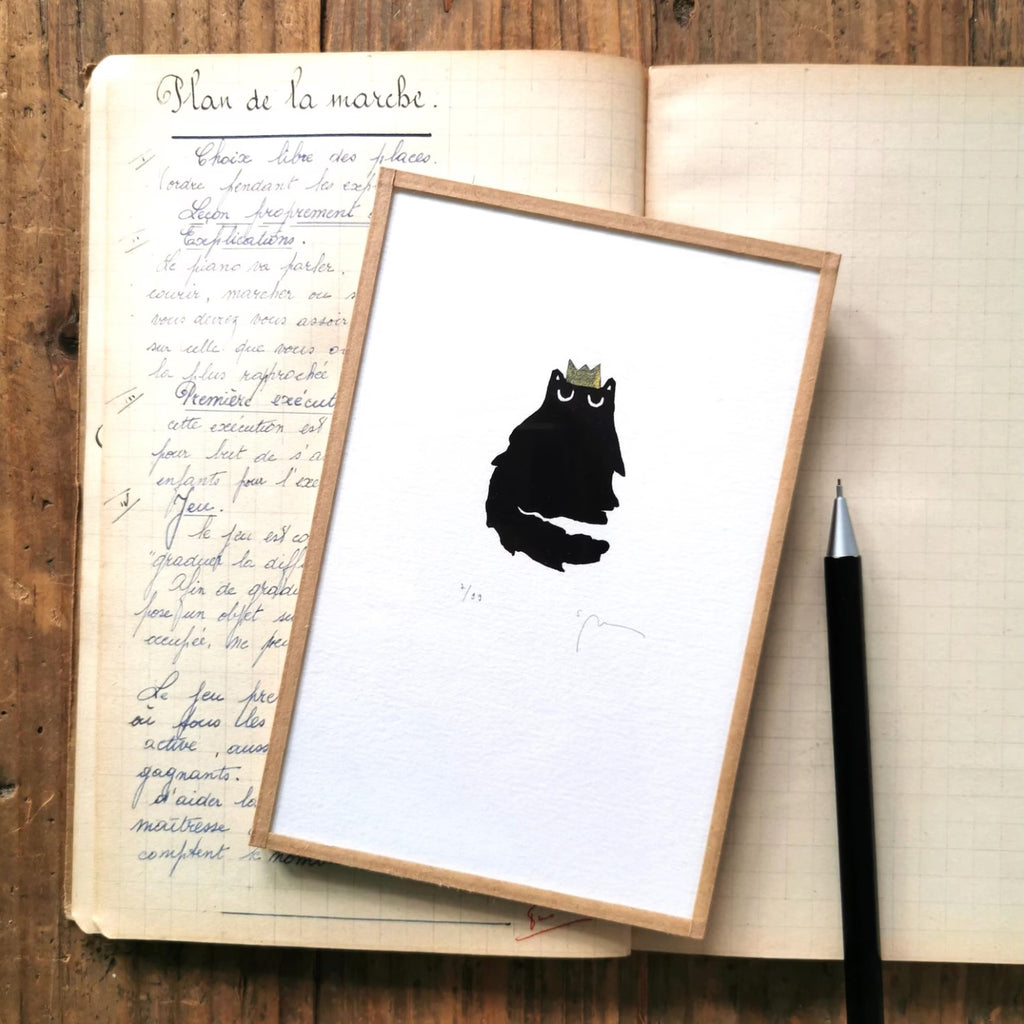 Plan de la marche.
I/
Choix libre des places.
(ordre pendant les exp
Leçon proprement
II/
Explications.
Le piano va parler.
courir, marcher ou s
vous devrez vous assoir
sur celle que vous
la plus rapprochée
III/
Première exécut
cette exécution est
pour but de s'a
enfants pour l'exé
IV/
Jeu.
Le jeu est co
"graduer la diff
Afin de gradu
pose un objet su
occupée, ne peu
Le jeu pre
où tous les
active, auss
gagnants.
d'aider la
maîtresse
comptent le nom
2/99